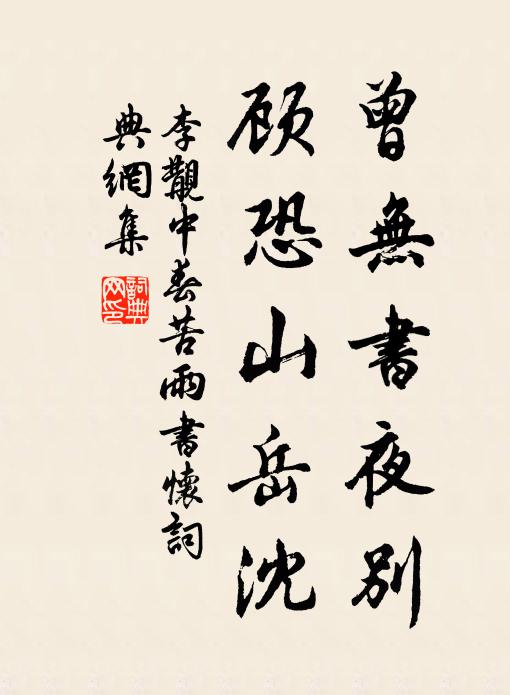 曾無書夜別
顾恐山岳沈
李觏中春苦雨書懷詞
典網集
詞典
网印